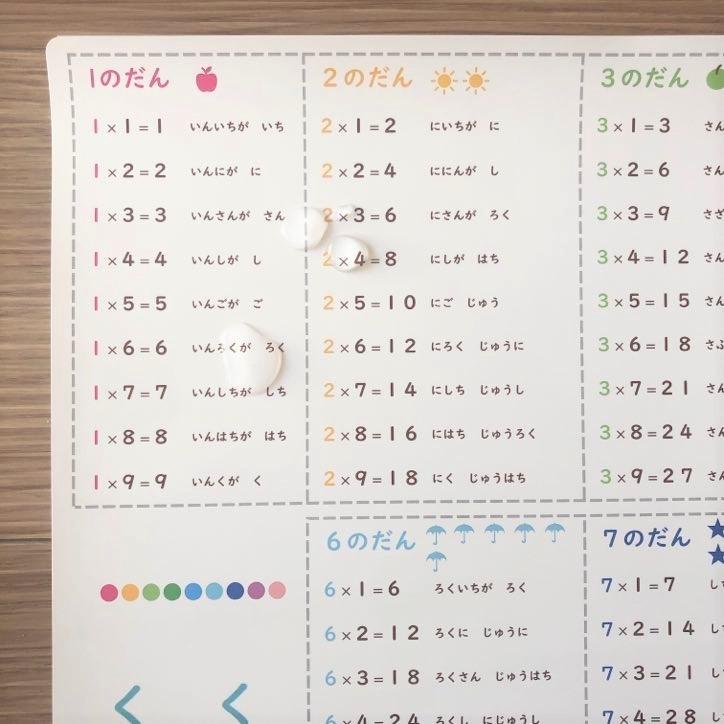 1のだん
1×1=1 いんいちが いち
1×2=2 いんにが に
1×3=3 いんさんが さん
1×4=4 いんしが し
1×5=5 いんごが ご
1×6=6 いんろくが ろく
1×7=7 いんしちが しち
1×8=8 いんはちが はち
1×9=9 いんくが く
2のだん
2×1=2 にいちが に
2×2=4 ににんが し
2×3=6 にさんが ろく
2×4=8 にしが はち
2×5=10 にご じゅう
2×6=12 にろく じゅうに
2×7=14 にしち じゅうし
2×8=16 にはち じゅうろく
2×9=18 にく じゅうはち
3のだん
3×1=3 さん
3×2=6 さん
3×3=9 さざ
3×4=12 さん
3×5=15 さん
3×6=18 さぶ
3×7=21 さん
3×8=24 さん
3×9=27 さん
6のだん
6×1=6 ろくいちが ろく
6×2=12 ろくに じゅうに
6×3=18 ろくさん じゅうはち
6×4=24 ろくし にじゅうし
7のだん
7×1=7 し
7×2=14 し
7×3=21 し
7×4=28 し
く く